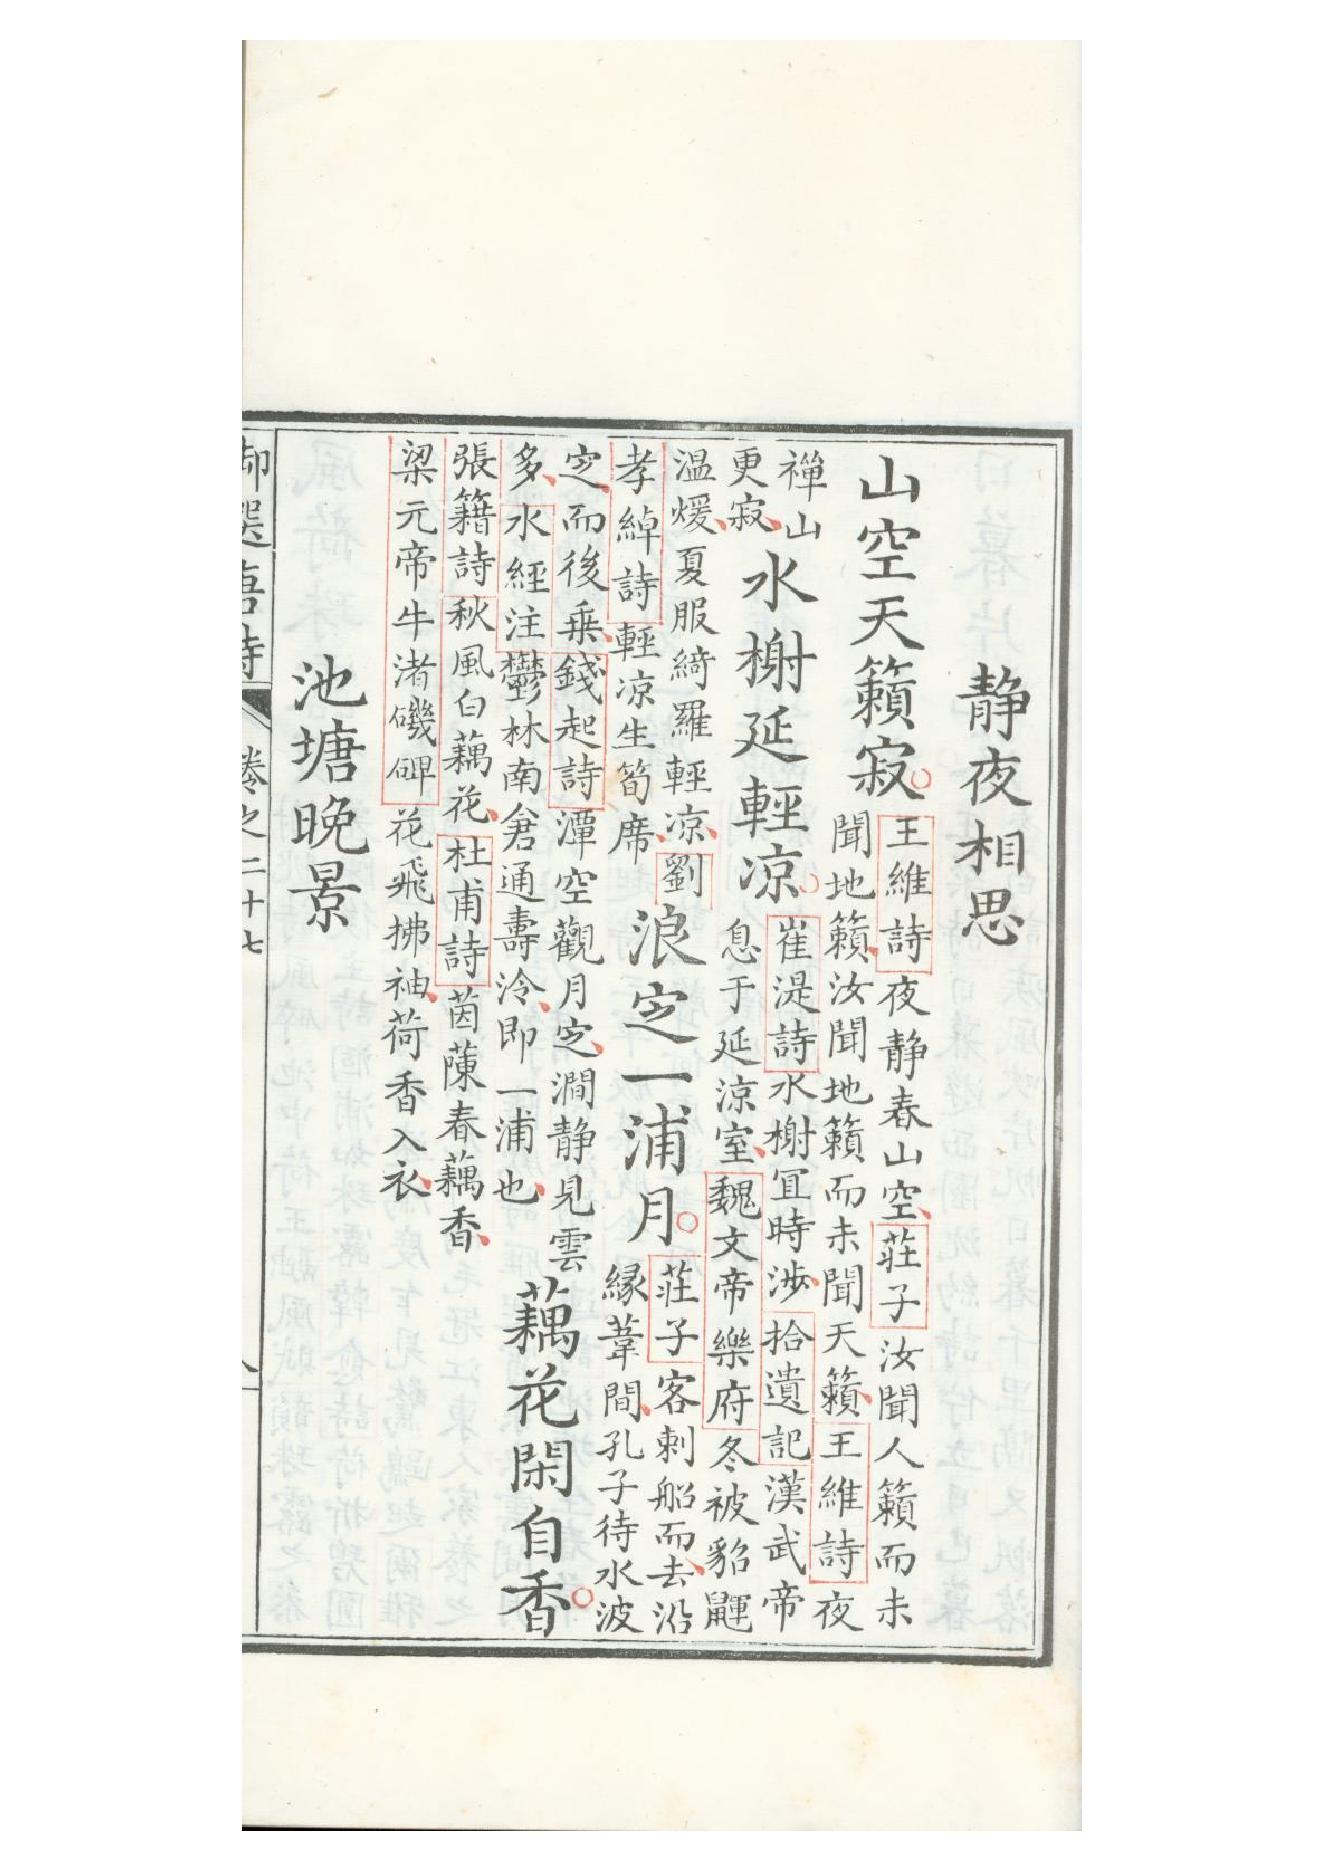 静夜相思
山空天籟寂
王維詩夜静春山空莊子汝聞人籟而未
聞地籟汝聞地籟而未聞天籟王維詩夜
禪山
更寂
水榭延輕凉
崔湜詩水榭宜時涉拾遺記漢武帝
息于延涼室魏文帝樂府冬被貂鼲
温煖夏服綺羅輕凉劉
孝綽詩輕凉生筍席
浪㝎一浦月
莊子客刺船而去沿
縁葦間孔子待水波
㝎而後乗錢起詩潭空觀月㝎澗静見雲
多水經注鬱林南倉通壽泠即一浦也
藕花閑自香
張籍詩秋風白藕花杜甫詩茵蔯春藕香
梁元帝牛渚磯碑花飛拂袖荷香入衣
池塘晩景
御選唐詩 卷之二十七 八